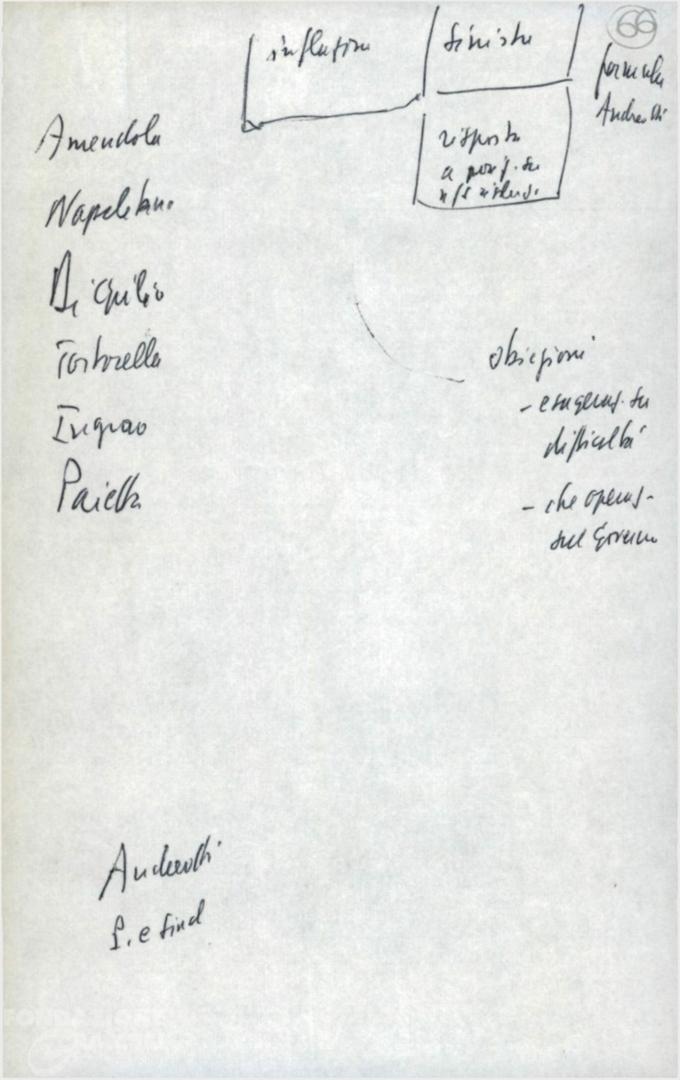 66
inflazione
Sinistra
formula
Andreotti
risposta
a
Amendola
Napolitano
Di Giulio
Tortorella
Ingrao
Pajetta
obiezioni
- esageraz. su
difficoltà
- che operaz.
sul Governo
Andreotti
P. e Sind